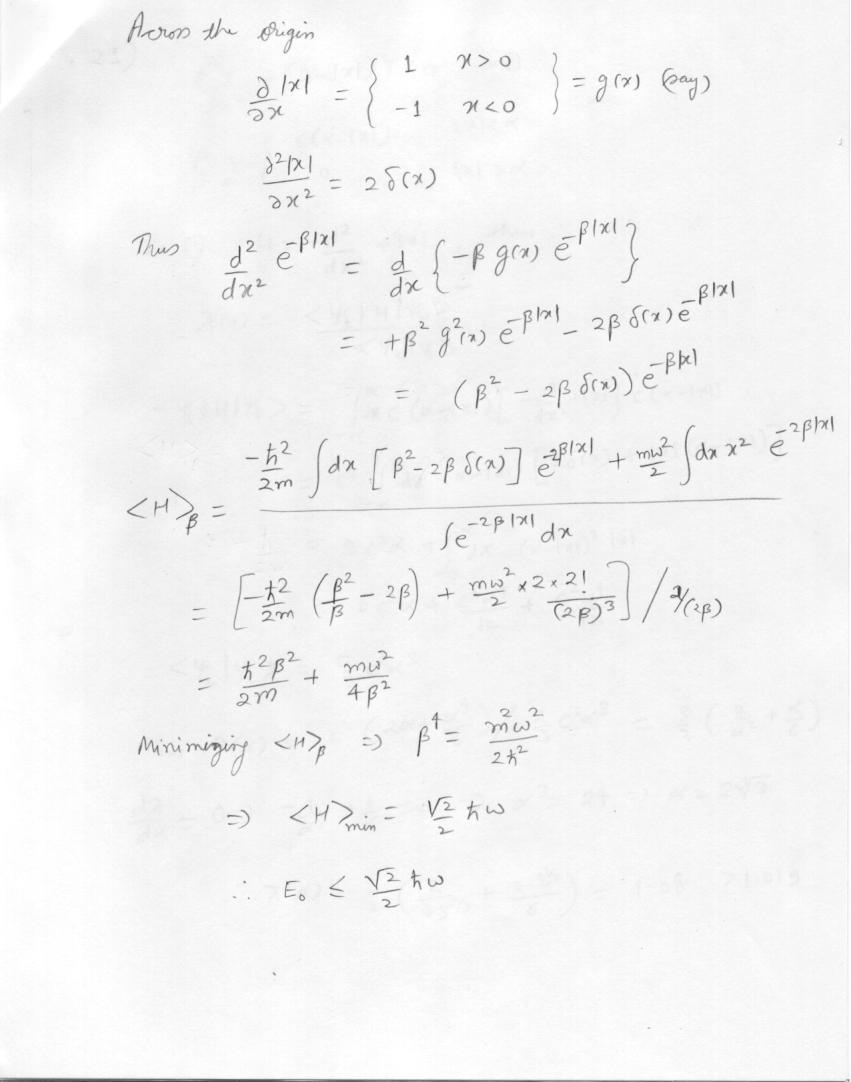 Across the origin
∂|x|/∂x = { 1 x>0 ; -1 x<0 } = g(x) (say)
∂²|x|/∂x² = 2δ(x)
Thus d²/dx² e^{-β|x|} = d/dx { -β g(x) e^{-β|x|} }
= +β² g²(x) e^{-β|x|} - 2β δ(x) e^{-β|x|}
= (β² - 2β δ(x)) e^{-β|x|}
<H>_β = ( -ħ²/2m ∫dx [β² - 2β δ(x)] e^{-2β|x|} + mω²/2 ∫dx x² e^{-2β|x|} ) / ( ∫e^{-2β|x|} dx )
= [ -ħ²/2m (β²/β - 2β) + mω²/2 × 2 × 2!/(2β)³ ] / 2/(2β)
= ħ²β²/2m + mω²/4β²
Minimizing <H>_β ⇒ β⁴ = m²ω²/2ħ²
⇒ <H>_min = √2/2 ħω
∴ E₀ ≤ √2/2 ħω